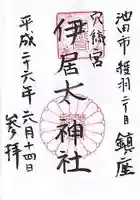 池田市綾羽二丁目鎮座
穴織宮
伊居太神社
平成二十六年六月十四日
参拝